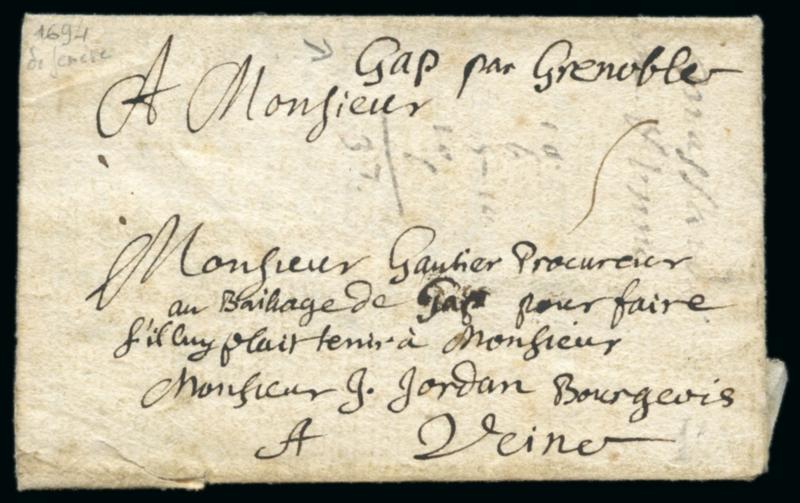 1694
de Geneve
Gap par Grenoble
A Monsieur
Monsieur Gautier Procureur
au Bailiage de Gap pour faire
s'il luy plait tenir à Monsieur
Monsieur J. Jordan Bourgeois
A Veine